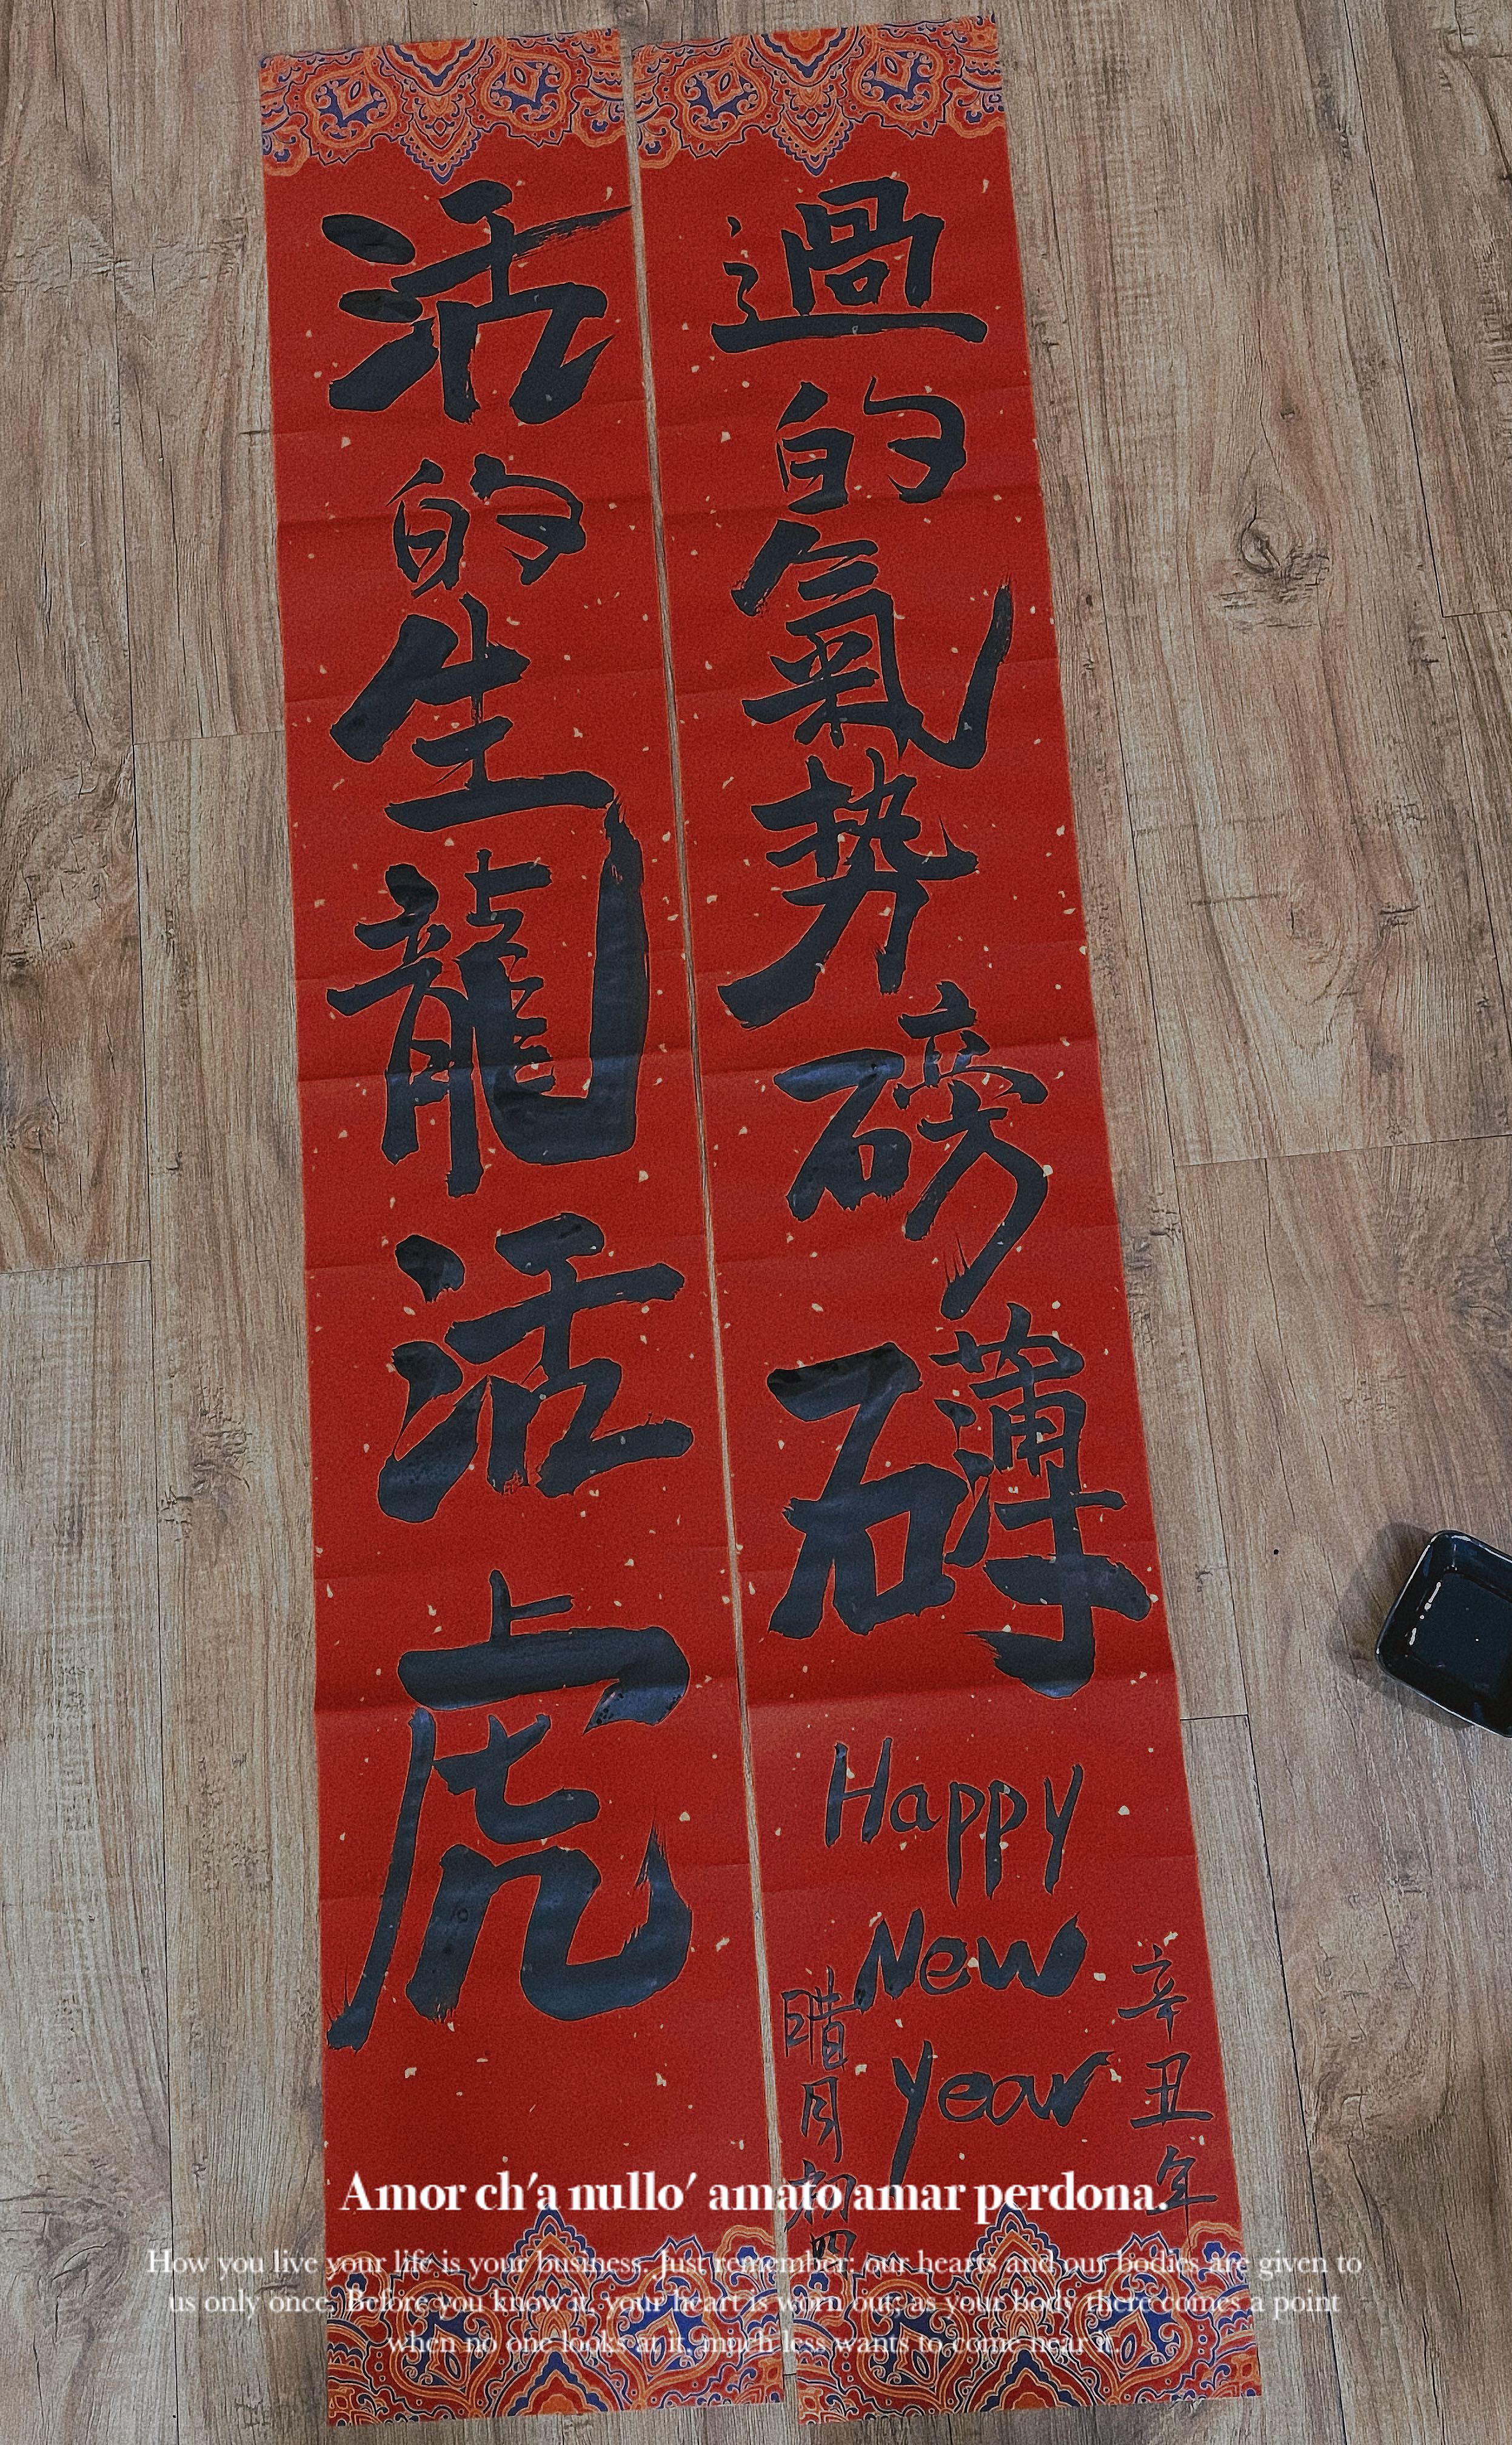 過的氣势磅礴
Happy
New
year
辛丑年
腊月初四
活的生龍活虎
Amor ch'a nullo' amato amar perdona.
How you live your life is your business. Just remember; our hearts and our bodies are given to
us only once. Before you know it, your heart is worn out; as your body there comes a point
when no one looks at it, much less wants to come near it.